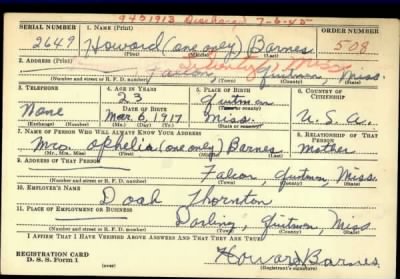 9451913 Discharged 7-6-45
SERIAL NUMBER 1. NAME (Print) ORDER NUMBER
2649 Howard (one only) Barnes 508
2. ADDRESS (Print)
Falcon, Quitman, Miss.
(Number and street or R. F. D. number) (Town) (County) (State)
3. TELEPHONE 4. AGE IN YEARS 5. PLACE OF BIRTH 6. COUNTRY OF CITIZENSHIP
23 Quitman
DATE OF BIRTH (Town or county)
None Mar. 6, 1917. Miss. U. S. A.
(Exchange) (Number) (Mo.) (Day) (Yr.) (State or country)
7. NAME OF PERSON WHO WILL ALWAYS KNOW YOUR ADDRESS 8. RELATIONSHIP OF THAT PERSON
Mrs. Ophelia (one only) Barnes Mother
(Mr., Mrs., Miss) (First) (Middle) (Last)
9. ADDRESS OF THAT PERSON
Falcon Quitman, Miss.
(Number and street or R. F. D. number) (Town) (County) (State)
10. EMPLOYER'S NAME
Doak Thornton
11. PLACE OF EMPLOYMENT OR BUSINESS
Darling, Quitman, Miss
(Number and street or R. F. D. number) (Town) (County) (State)
I AFFIRM THAT I HAVE VERIFIED ABOVE ANSWERS AND THAT THEY ARE TRUE.
REGISTRATION CARD
D. S. S. Form 1 (over) Howard Barnes
(Registrant's signature)